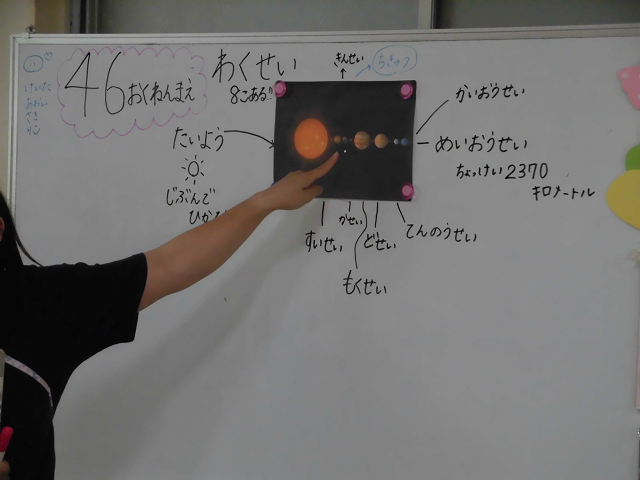 46おくねんまえ
わくせい
8こある!!
きんせい
ちきゅう
かいおうせい
たいよう
めいおうせい
ちょっけい2370
キロメートル
じぶんで
ひか
すいせい
かせい
どせい
てんのうせい
もくせい